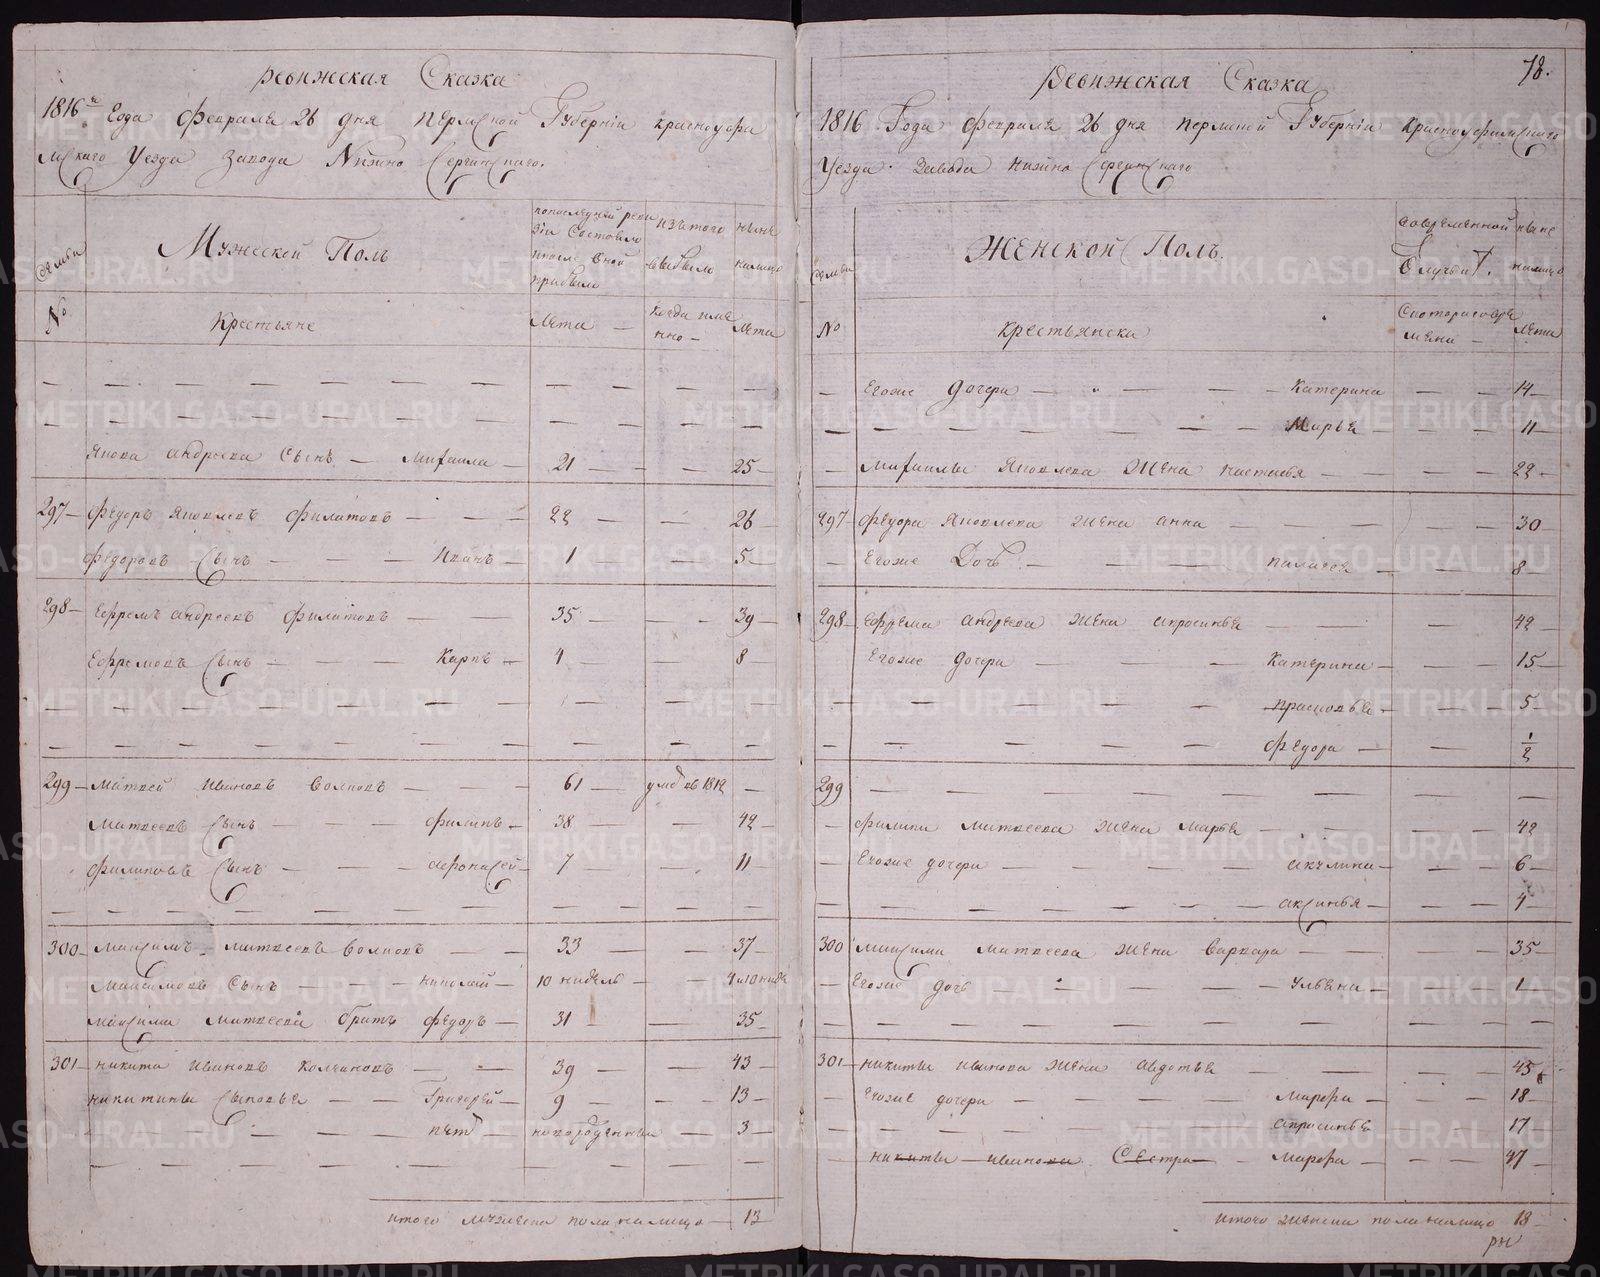 ревижская Сказка
1816го Года Февраля 26 дня пермской Губерніи красноуфи
мскаго Уезда Завода Нижно Сергинскаго.
семьи
Мужеской Полъ
попоследней реви
зіи Состояло
и после оной
прибыло
изътого
выбыло
ныне
налицо
№
Крестьяне
Лета
когда име
нно
Лета
Якова андреева Сынъ Михаила 21 25
297 Федоръ Яковлевъ Филатовъ 22 26
Федоровъ Сынъ Иванъ 1 5
298 Ефремъ андреевъ Филатовъ 35 39
Ефремовъ Сынъ Карпъ 4 8
299 Матвей Ивановъ Волковъ 61 умре въ 1812
Матвеевъ Сынъ Филипъ 38 42
Филиповъ Сынъ Афонасей 7 11
300 Максимъ Матвеевъ Волковъ 33 37
Максимовъ Сынъ николай 10 нидель 4 и 10 ниде
Максима Матвеева братъ Федоръ 31 35
301 никита Ивановъ Колчановъ 39 43
никитины Сыновья Григорей 9 13
петръ новорожденный 3
итого мужеска пола налицо 13
78.
Ревижская Сказка
1816 Года Февраля 26 дня пермской Губерніи Красноуфимскаго
Уезда Завода нижно Сергинскаго
семьи
Женской Полъ.
Современной
Отлучки
ныне
налицо
№
крестьянска
Скоторагове
мени
Лета
Егоже дочери Катерина 14
Марья 11
Михаилы Яковлева Жена настасья 22
297 Федора Яковлева жена анна 30
Егоже Дочь палагея 8
298 Ефрема андреева жена апросинья 42
Егоже дочери Катерина 15
прасковья 5
Федора 1/2
299
Филипа Матвеева жена Марья 42
Егоже дочери акулина 6
аксинья 4
300 Максима Матвеева жена Варвара 35
Егоже дочь Ульяна 1
301 никиты Иванова жена Авдотья 45
Егоже дочери Марфа 18
апросинья 17
никиты Иванова Сестра Марфа 47
итого женска пола налицо 18
рн
METRIKI.GASO-URAL.RU